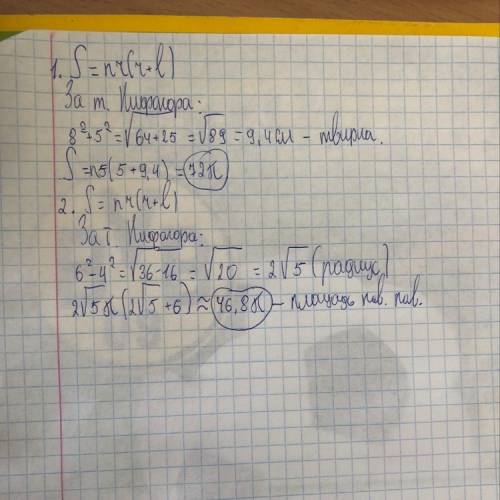 1. S = πr(r+l)
За т. Пифагора:
8²+5² = √64+25 = √89 = 9,4 см - твирна.
S = π5(5+9,4) = 72π
2. S = πr(r+l)
За т. Пифагора:
6²-4² = √36-16 = √20 = 2√5 (радиус)
2√5π(2√5+6) ≈ 46,8π - площадь пов. пов.